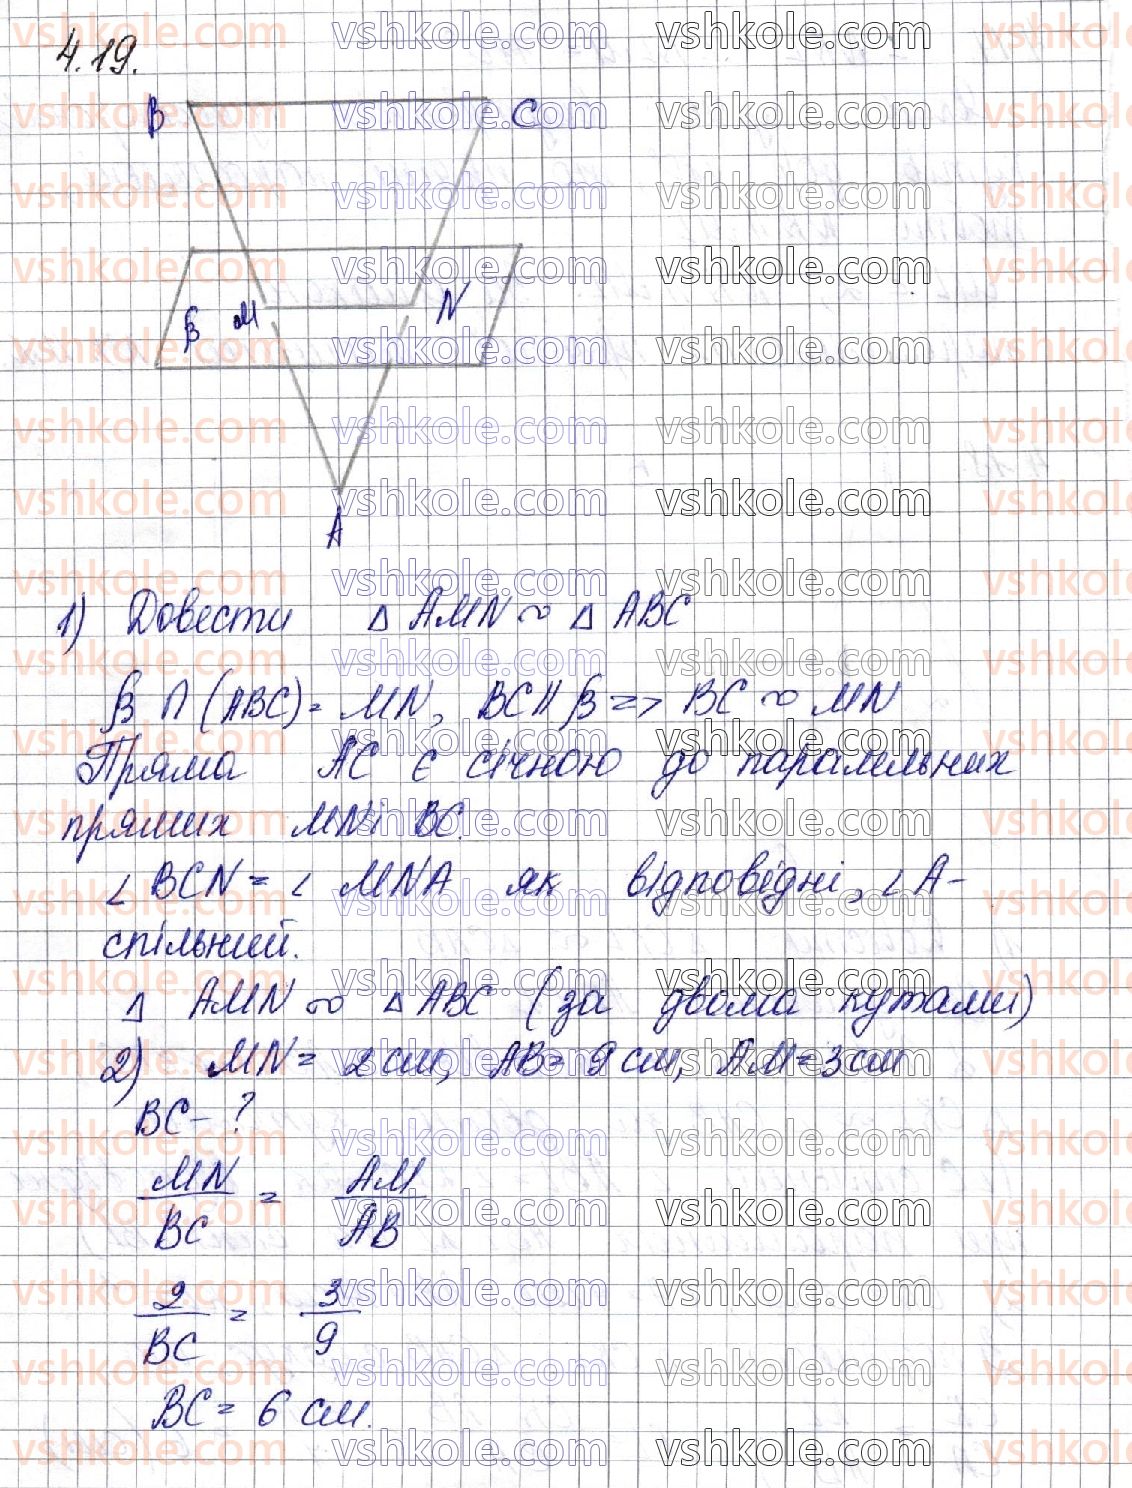 4.19.
B
C
β
M
N
A
1) Довести △ AMN ∾ △ ABC
β ∩ (ABC) = MN, BC || β => BC ∾ MN
Пряма AC є січною до паралельних
прямих MN і BC.
∠ BCN = ∠ MNA як відповідні, ∠ A-
спільний.
△ AMN ∾ △ ABC (за двома кутами)
2) MN = 2 см, AB = 9 см, AM = 3 см
BC - ?
MN/BC = AM/AB
2/BC = 3/9
BC = 6 см.
vshkole.com